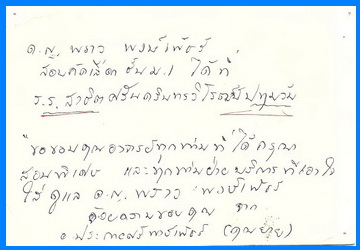 ด.ญ. พราว พงษ์เพ็ชร์
สอบคัดเลือก ชั้น ม.1 ได้ที่
ร.ร. สาธิต ศรีนครินทรวิโรฒ ปทุมวัน
"ขอขอบคุณอาจารย์ทุกท่านที่ได้กรุณา
สอนพิเศษ และทุกท่านฝ่ายบริการที่เอาใจ
ใส่ ดูแล ด.ญ. พราว พงษ์เพ็ชร์
ด้วยความขอบคุณ จาก
(คุณยาย)